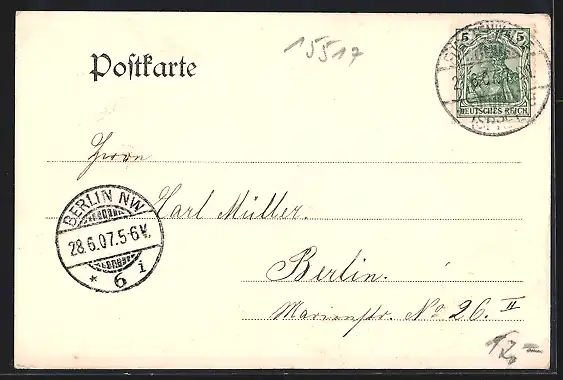 15517
5 5
DEUTSCHES REICH
Postkarte
Herrn
Karl Müller.
BERLIN NW
28.6.07.5-6V.
* 6 i
Berlin.
Marienstr. No 26 II
12,=